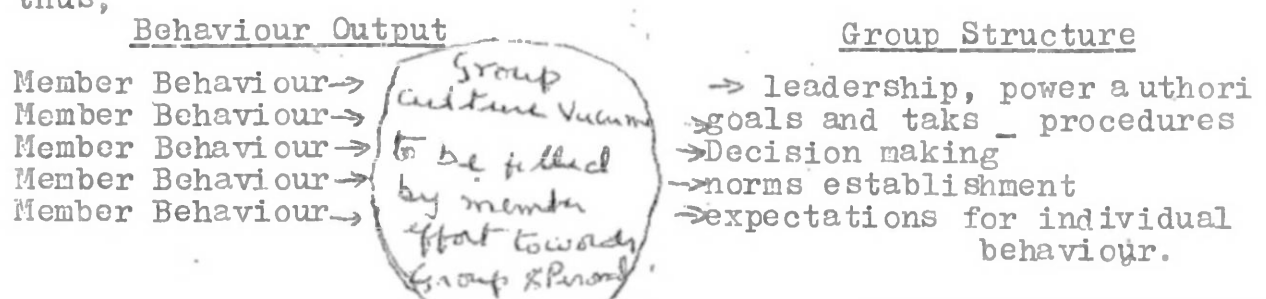 thus,
Behaviour Output
Group Structure
Member Behaviour→
Member Behaviour→
Member Behaviour→
Member Behaviour→
Member Behaviour→
Group
culture Vucume
to be filled
by member
effort towards
Group & Personal
→ leadership, power a uthori
→goals and taks _ procedures
→Decision making
→norms establishment
→expectations for individual
behaviour.